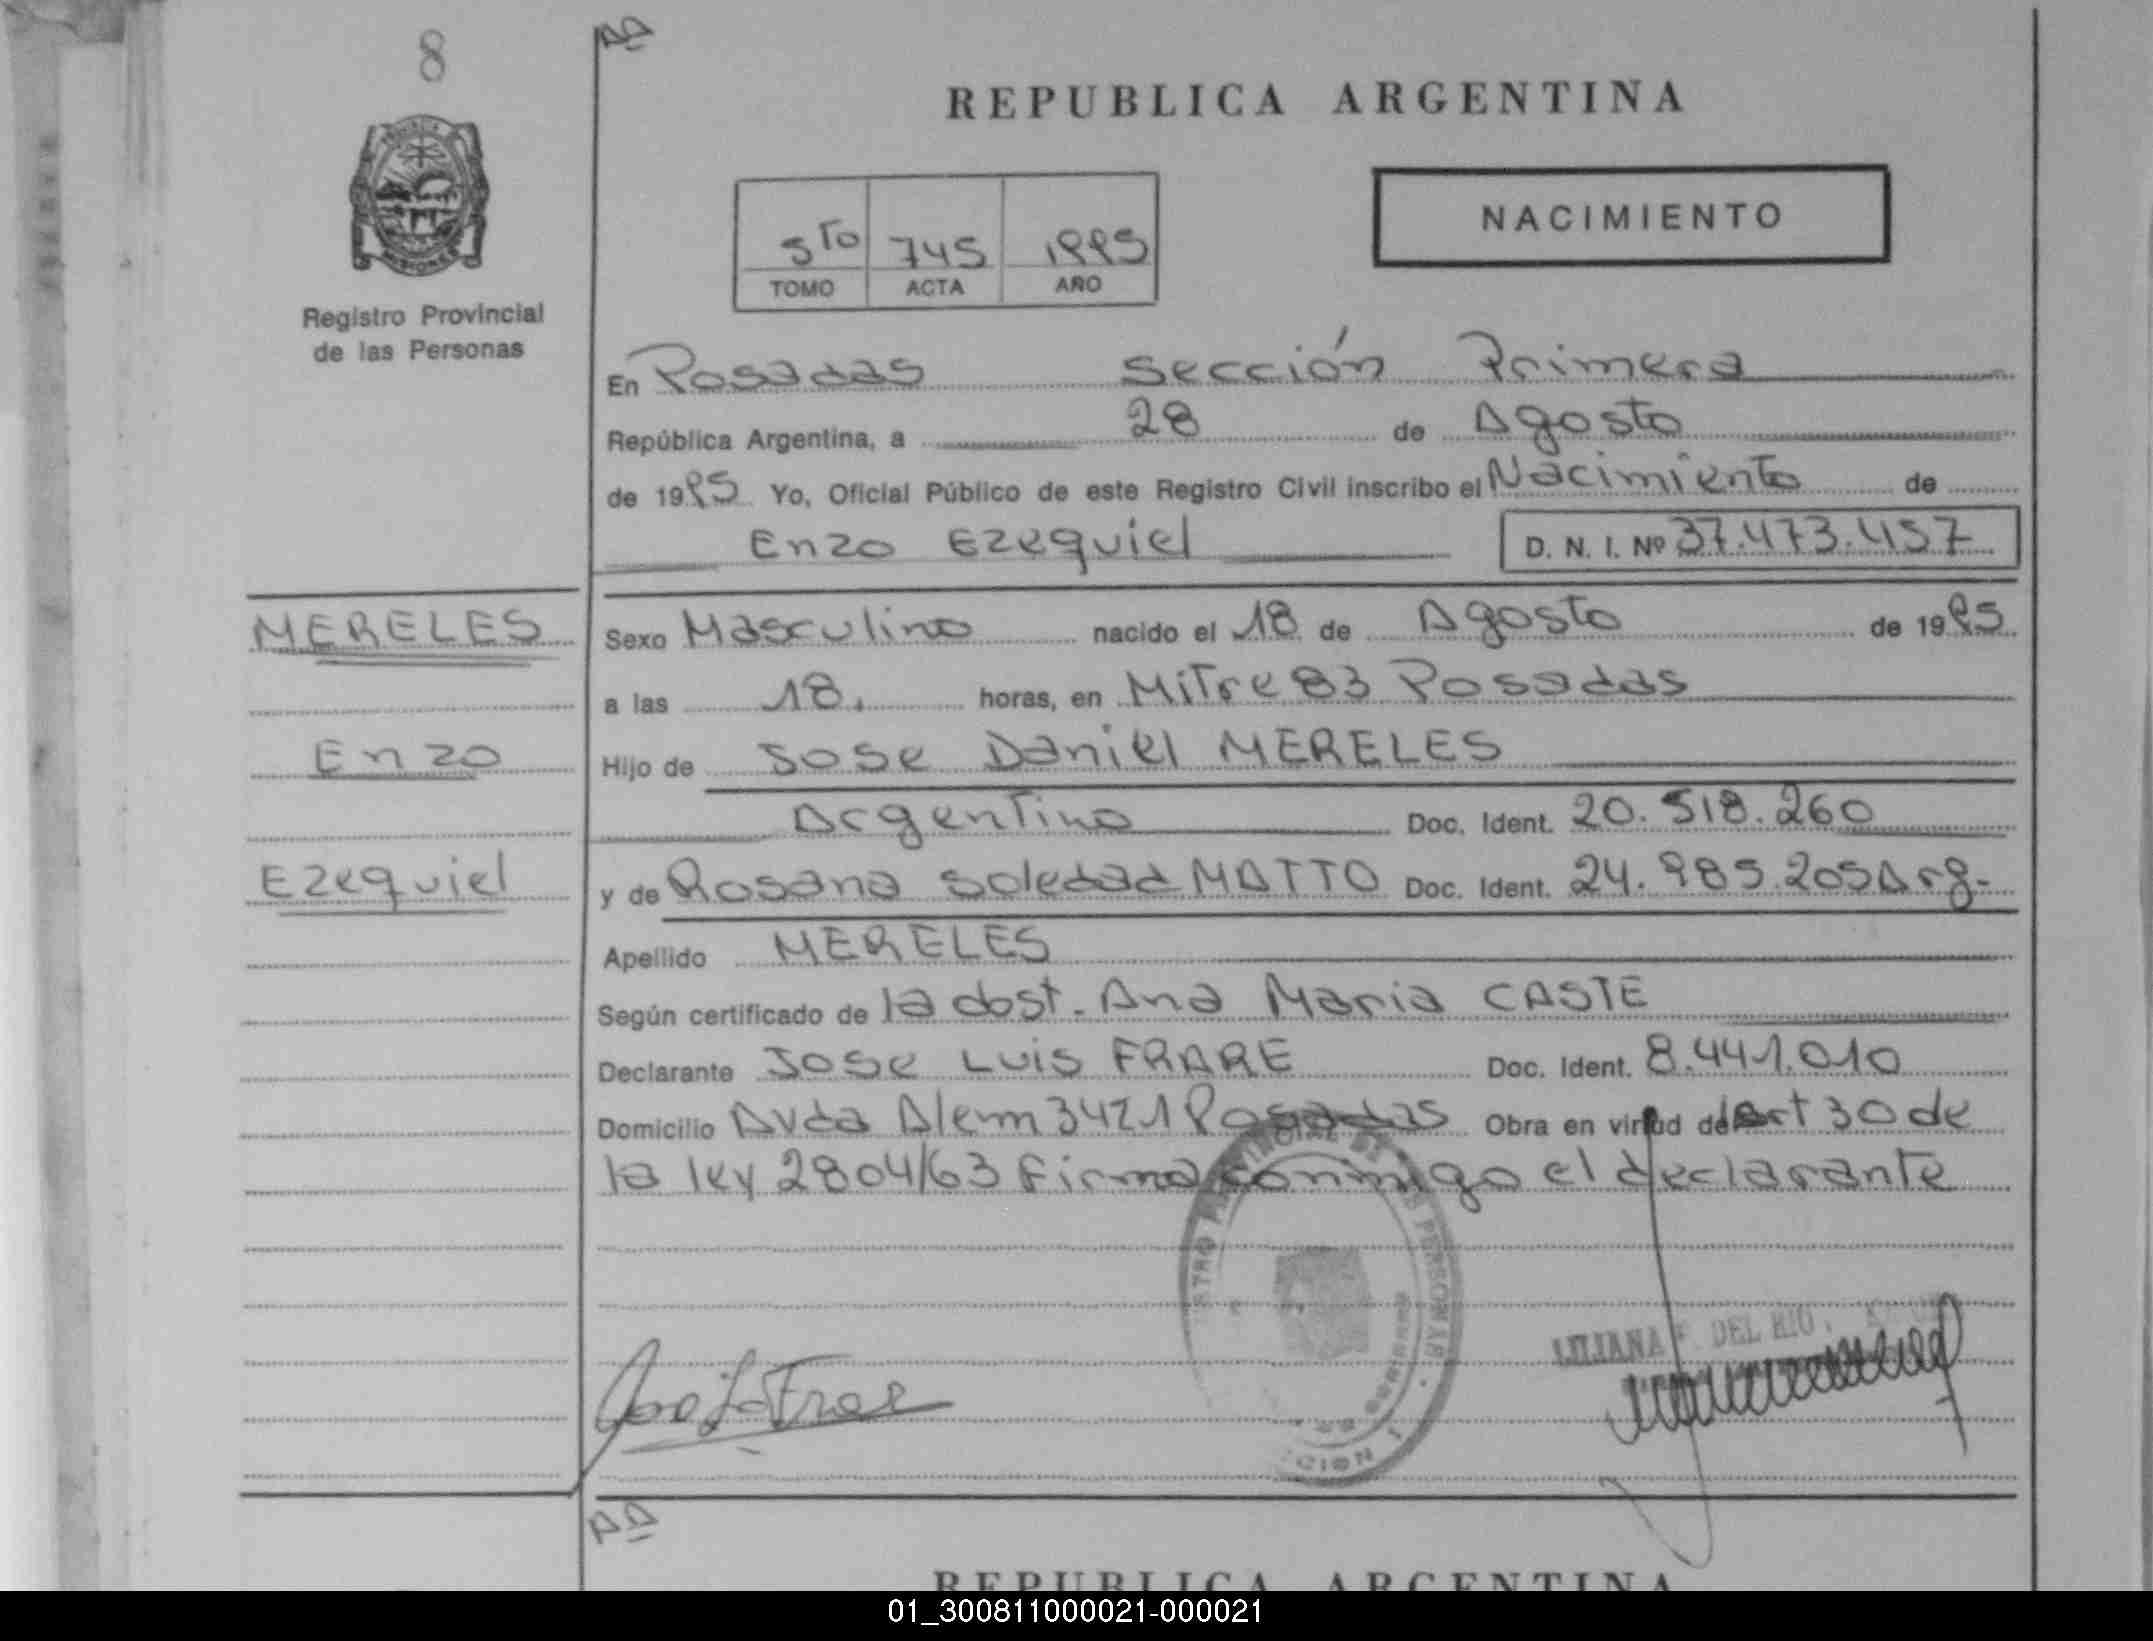 8
REPUBLICA ARGENTINA
5to 745 1995
TOMO ACTA AÑO
NACIMIENTO
MISIONES
Registro Provincial
de las Personas
En Posadas Sección Primera
República Argentina, a 28 de Agosto
de 1995 Yo, Oficial Público de este Registro Civil inscribo el Nacimiento de
Enzo Ezequiel D. N. I. Nº 37.473.457
MERELES
Enzo
Ezequiel
Sexo Masculino nacido el 18 de Agosto de 1995
a las 18. horas, en Mitre 83 Posadas
Hijo de Jose Daniel MERELES
Argentino Doc. Ident. 20.518.260
y de Rosana Soledad MATTO Doc. Ident. 24.985.205 Arg.
Apellido MERELES
Según certificado de la obst. Ana Maria CASTE
Declarante Jose Luis FRARE Doc. Ident. 8.441.010
Domicilio Avda Alem 3421 Posadas Obra en virtud del art 30 de
la ley 2804/63 firma conmigo el declarante
LILIANA F. DEL RIO
REPUBLICA ARGENTINA
01_300811000021-000021